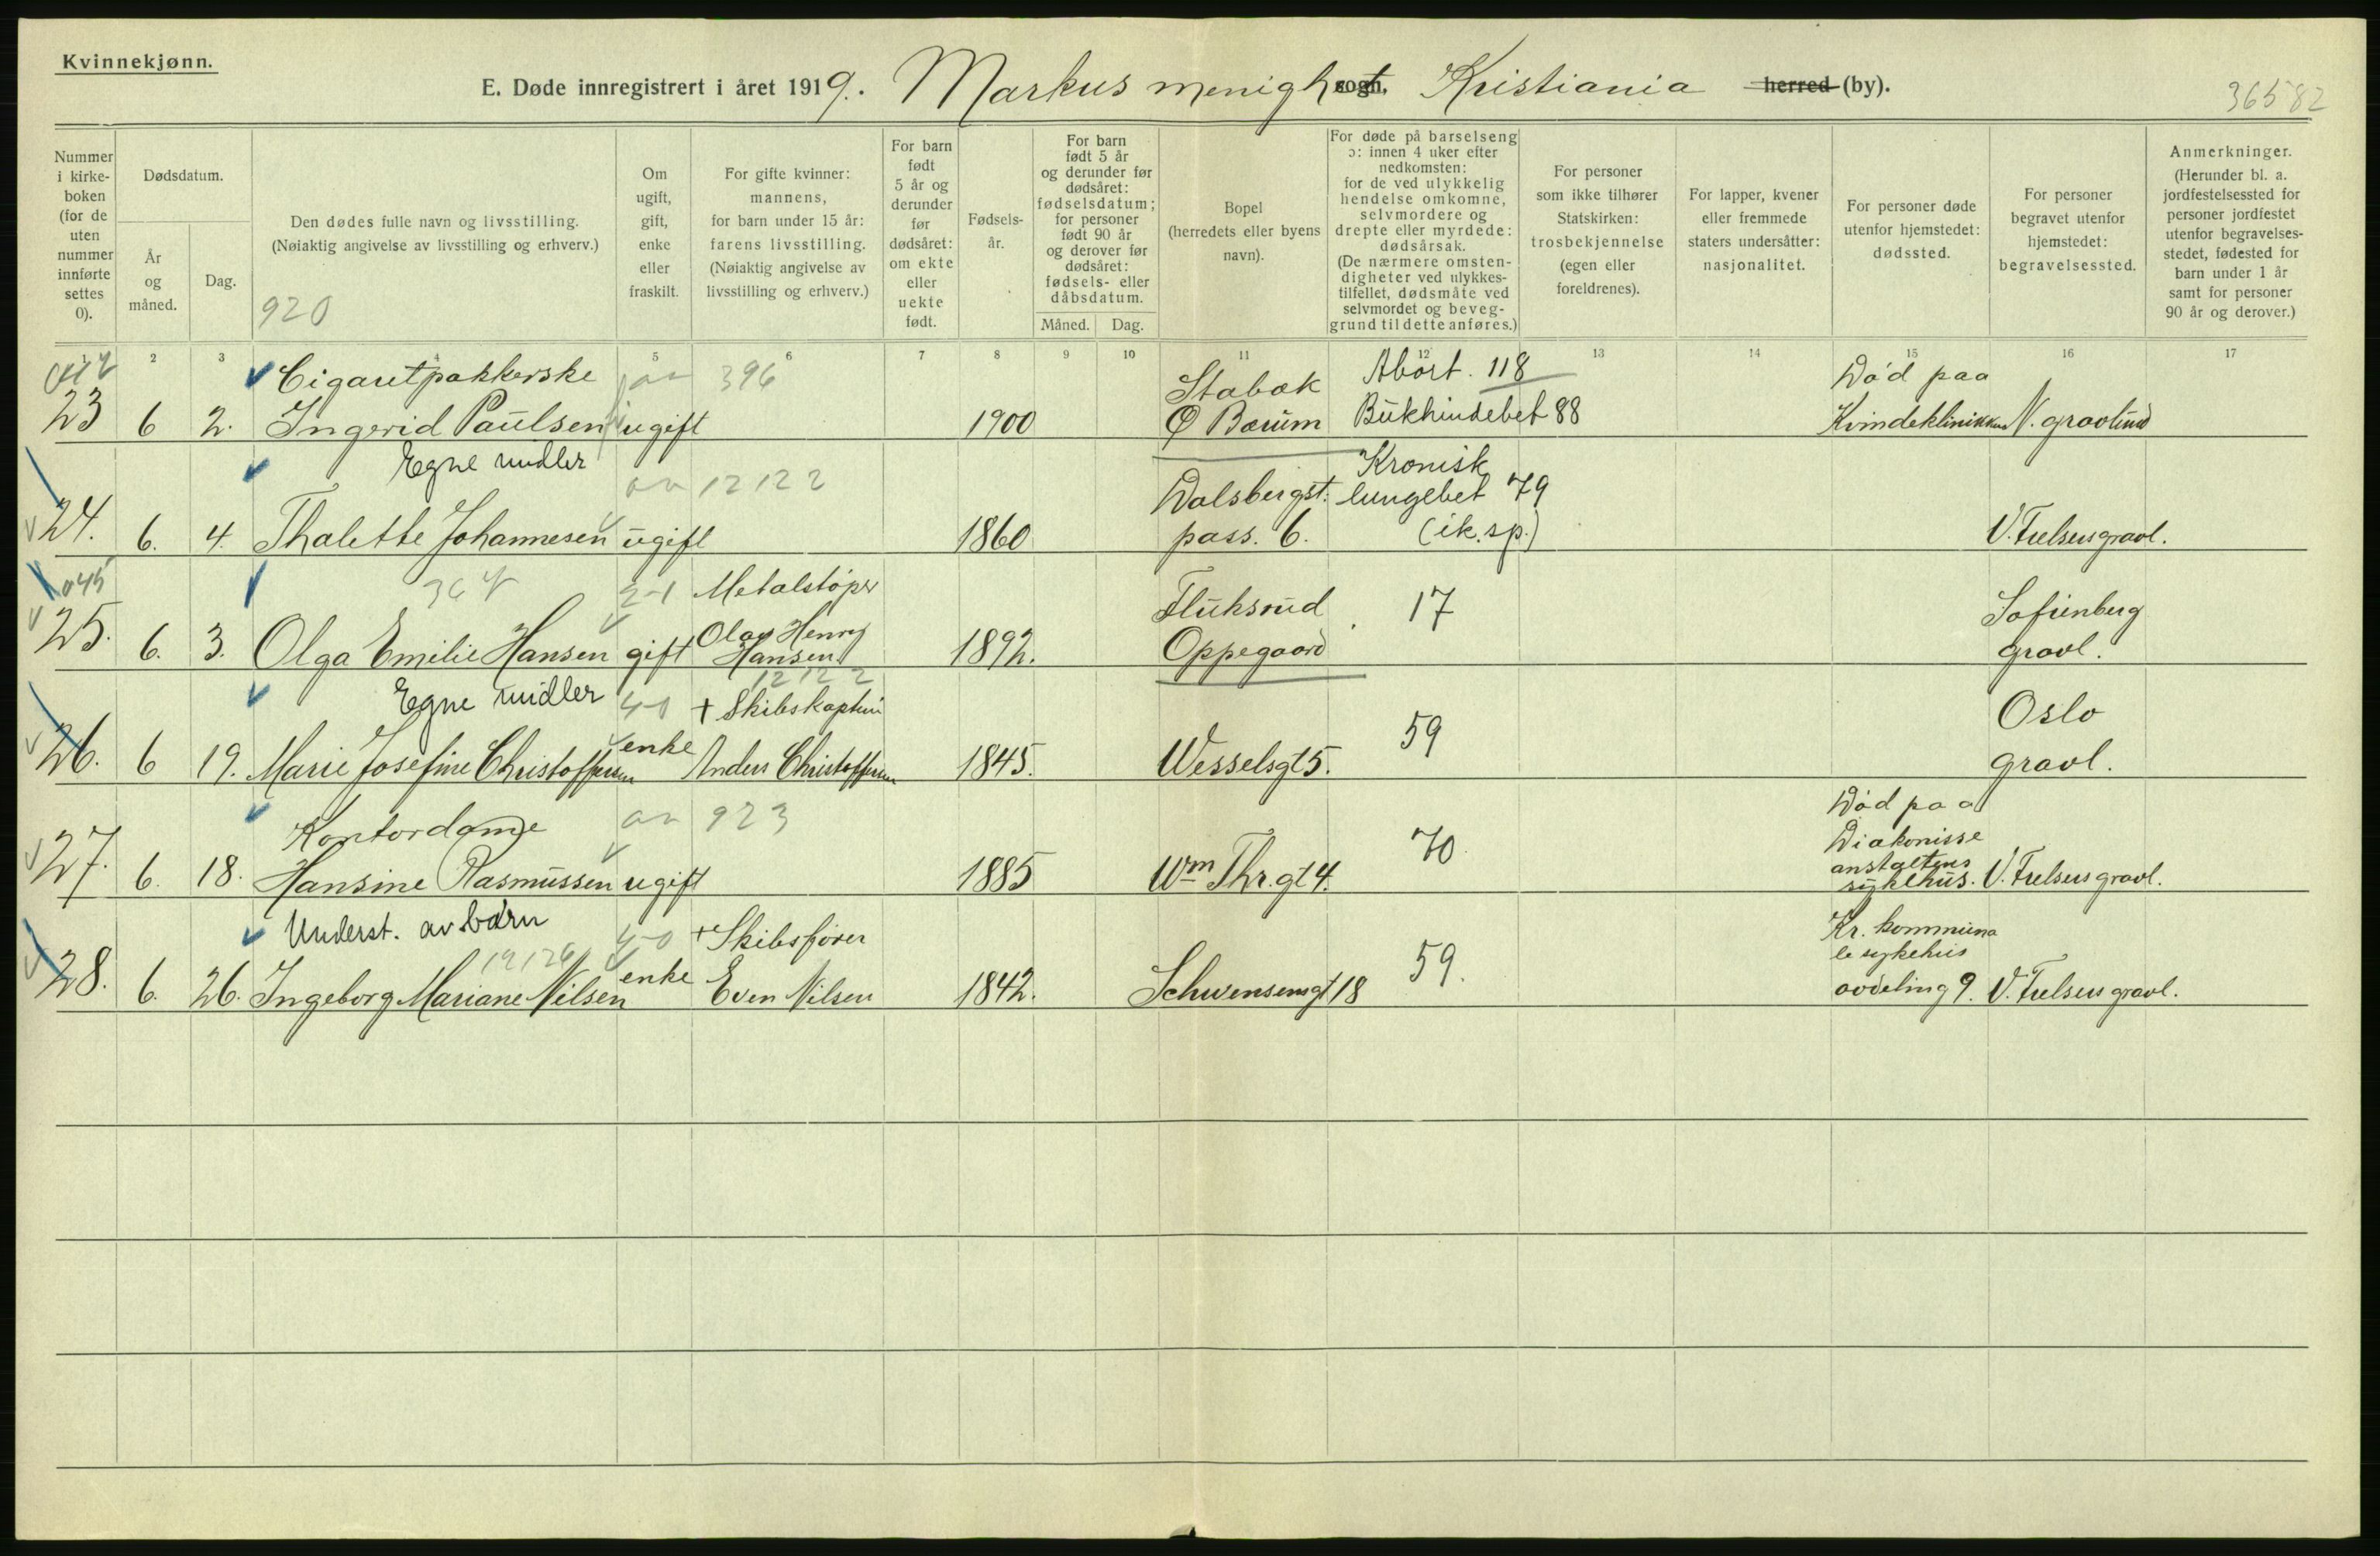 Kvinnekjønn.
E. Døde innregistrert i året 1919. Markus menigh sogn, Kristiania herred (by).
36582
Nummer i kirke-boken (for de uten nummer innførte settes 0).
Dødsdatum.
År og måned.
Dag.
Den dødes fulle navn og livsstilling.
(Nøiaktig angivelse av livsstilling og erhverv.)
920
Om ugift, gift, enke eller fraskilt.
For gifte kvinner: mannens, for barn under 15 år: farens livsstilling. (Nøiaktig angivelse av livsstilling og erhverv.)
For barn født 5 år og derunder før dødsåret: om ekte eller uekte født.
Fødsels-år.
For barn født 5 år og derunder før dødsåret: fødselsdatum; for personer født 90 år og derover før dødsåret: fødsels- eller dåbsdatum.
Måned.
Dag.
Bopel (herredets eller byens navn).
For døde på barselseng ɔ: innen 4 uker efter nedkomsten: for de ved ulykkelig hendelse omkomne, selvmordere og drepte eller myrdede: dødsårsak. (De nærmere omsten-digheter ved ulykkes-tilfellet, dødsmåte ved selvmordet og beveg-grund til dette anføres.)
For personer som ikke tilhører Statskirken: trosbekjennelse (egen eller foreldrenes).
For lapper, kvener eller fremmede staters undersåtter: nasjonalitet.
For personer døde utenfor hjemstedet: dødssted.
For personer begravet utenfor hjemstedet: begravelsessted.
Anmerkninger. (Herunder bl. a. jordfestelsessted for personer jordfestet utenfor begravelses-stedet, fødested for barn under 1 år samt for personer 90 år og derover.)
2 3 5 6 7 8 9 10 11 12 13 14 15 16 17
Cigaretpakkerske 396 Stabæk Abort. 118 Død paa
23 6 2. Ingerid Paulsen ugift 1900 Ø Bærum Bukhindebet 88 Kvindeklinikken N. gravlund
Egne midler 12122 Kronisk
24. 6. 4. Thalette Johannesen ugift 1860 Dalsbergst. lungebet 79
pass. 6. (ik. sp.) V. Frelsers gravl.
045 2-1 Metalstøper Fluksrud 17 Sofienberg
25. 6. 3. Olga Emilie Hansen gift Olav Henry Hansen 1892. Oppegaard gravl.
Egne midler 4-0 12122 + Skibskaptein 59 Oslo
26. 6 19. Marie Josefine Christoffersen enke Anders Christoffersen 1845. Wesselsgt 5. gravl.
Kontordame 923 70 Død paa Diakonisse
27. 6. 18. Hansine Rasmussen ugift 1885 Wm Thr. gt 4. anstaltens sykehus. V. Frelsers gravl.
Underst. av børn 4-0 + Skibsfører 59. Kr. kommuna
le sykehus
28. 6. 26. Ingeborg Mariane Nilsen enke Even Nilsen 1842. Schwensensgt 18 avdeling 9. V. Frelsers gravl.